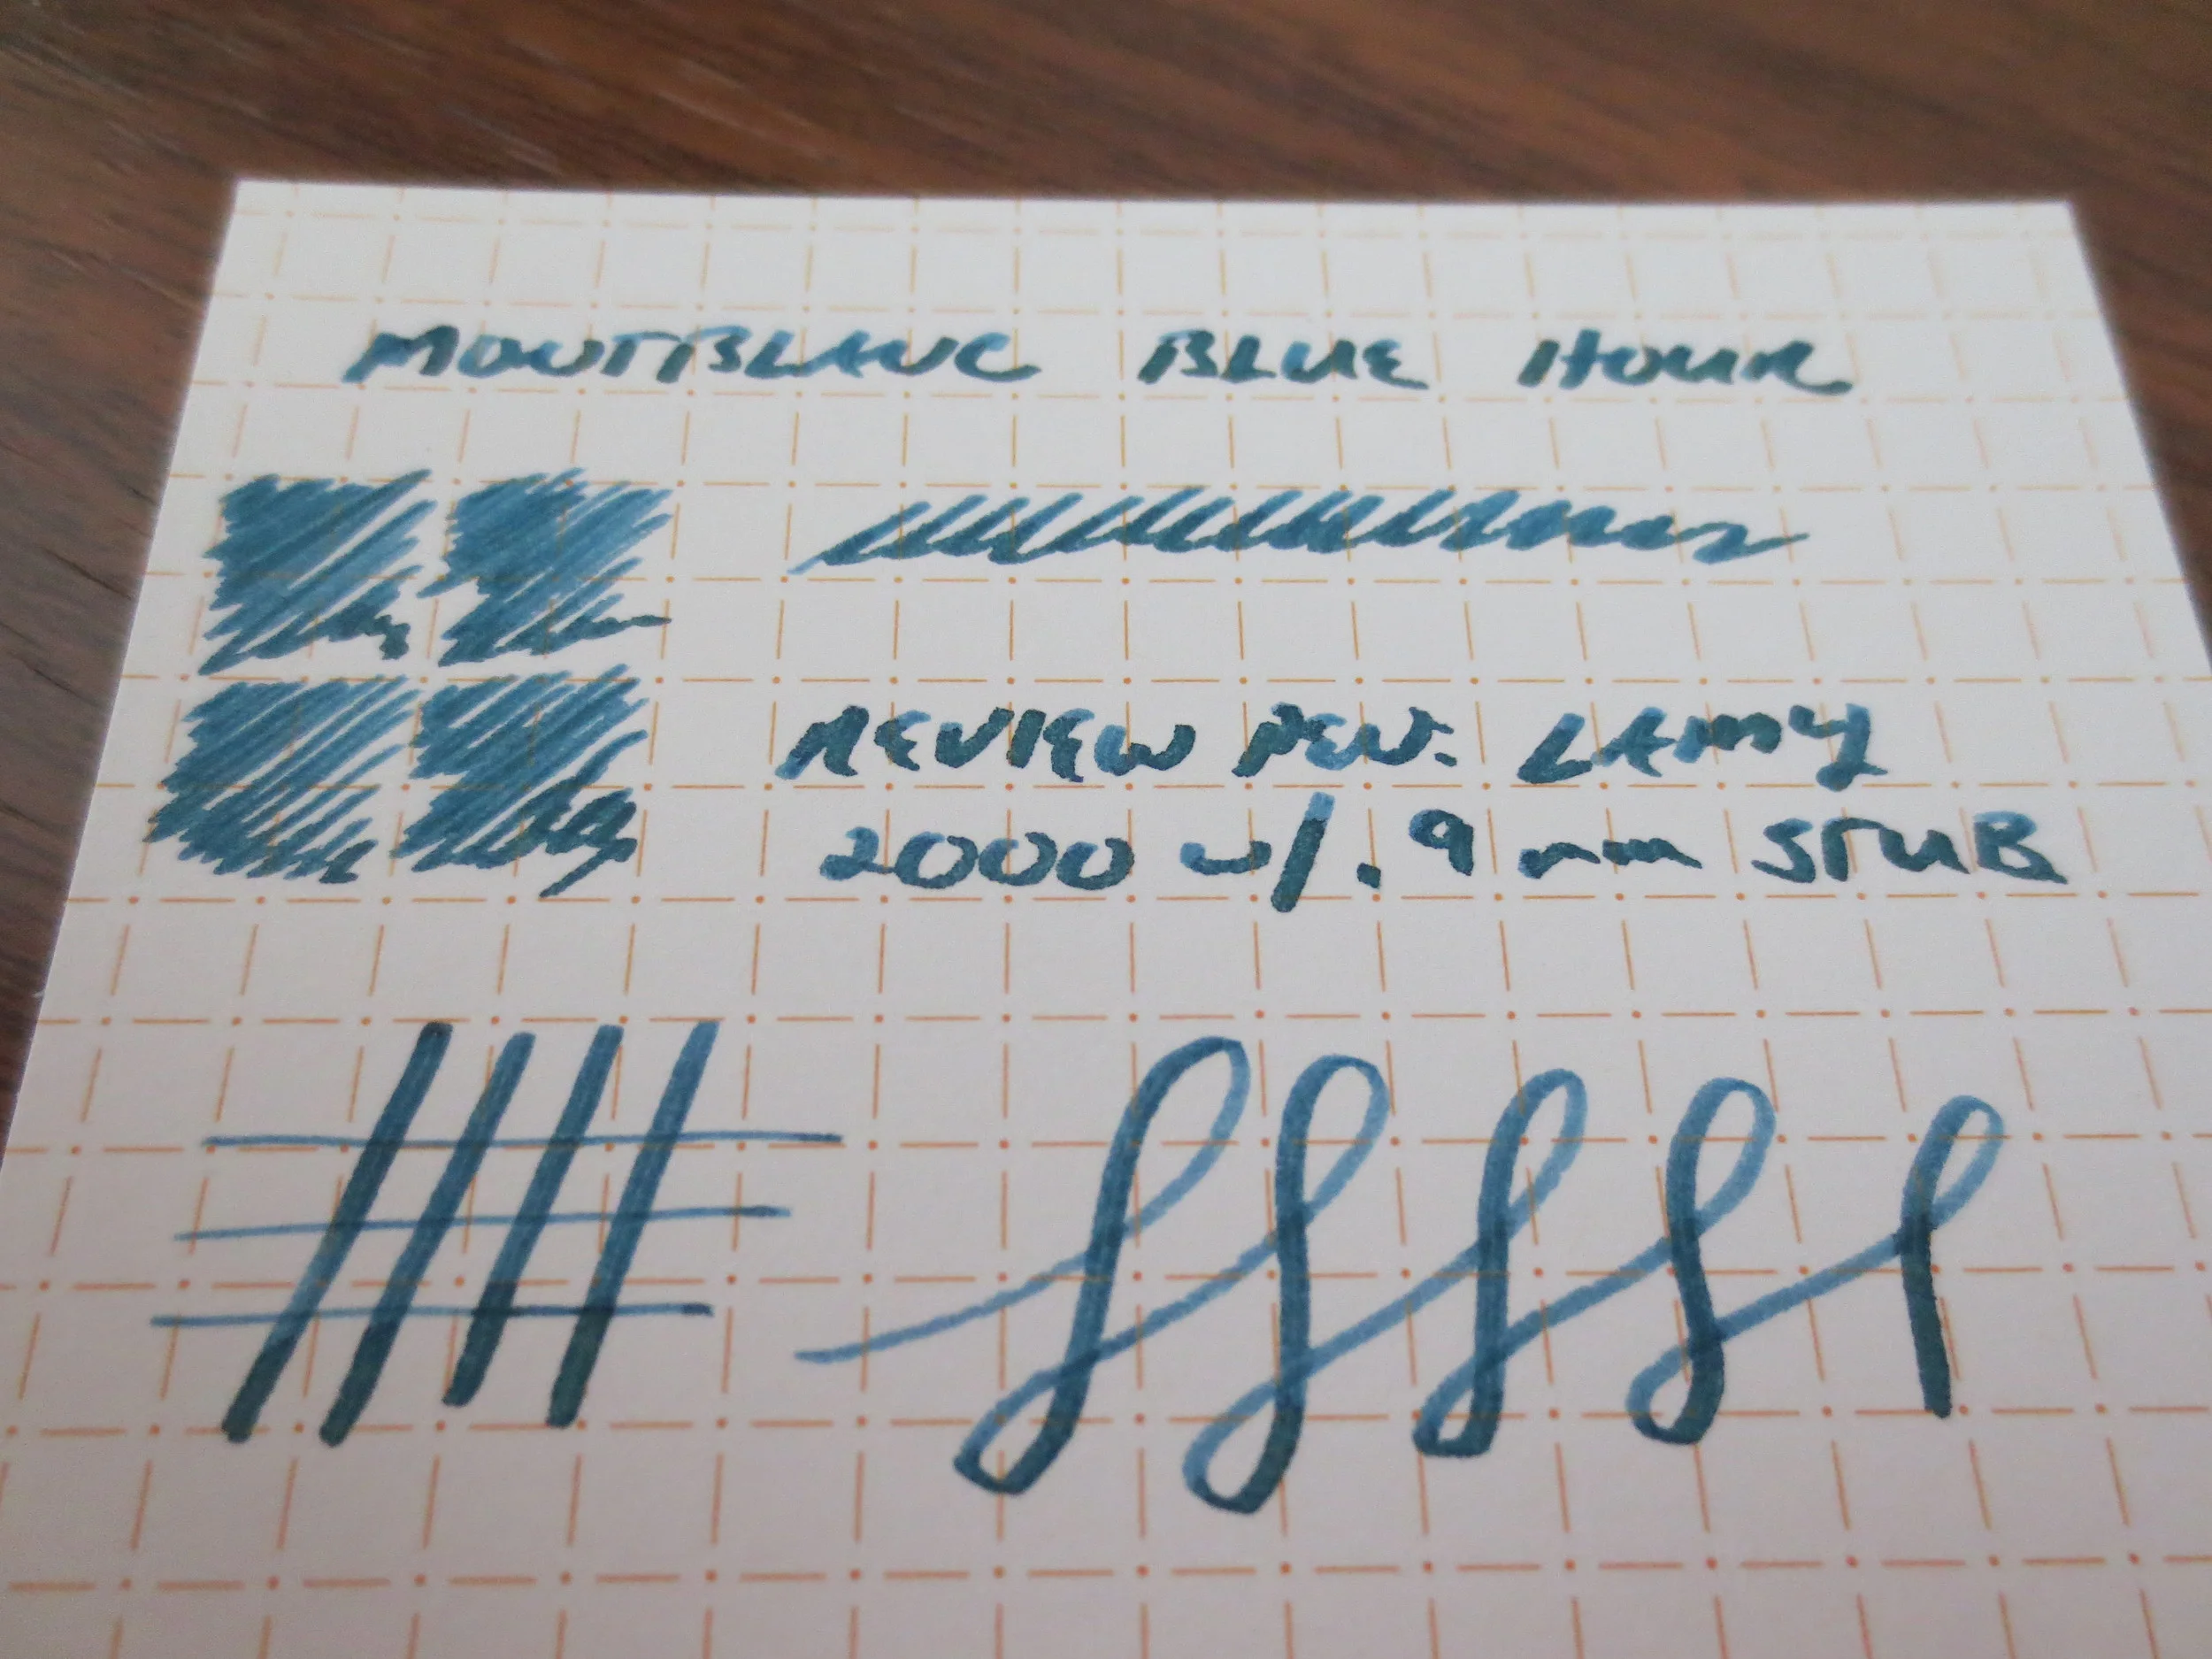 MONTBLANC BLUE HOUR
REVIEW PEN: LAMY
2000 w/ .9mm STUB